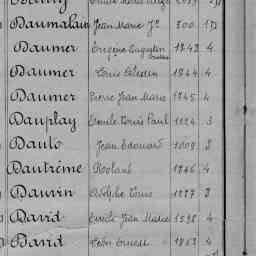 Daumalain Jean Marie Jh 800 173
Daumer Eugène Augustin 1843 4
Daumer Louis Célestin 1844 4
Daumer Pierre Jean Marie 1845 4
Dauplay Emile Louis Paul 1124 3
Dauto Jean Edouard 1009 3
Dautréme Roland 1846 4
Dauvin Adolphe Louis 8
David Emile Jean Marie 1598 4
David Léon Ernest 4